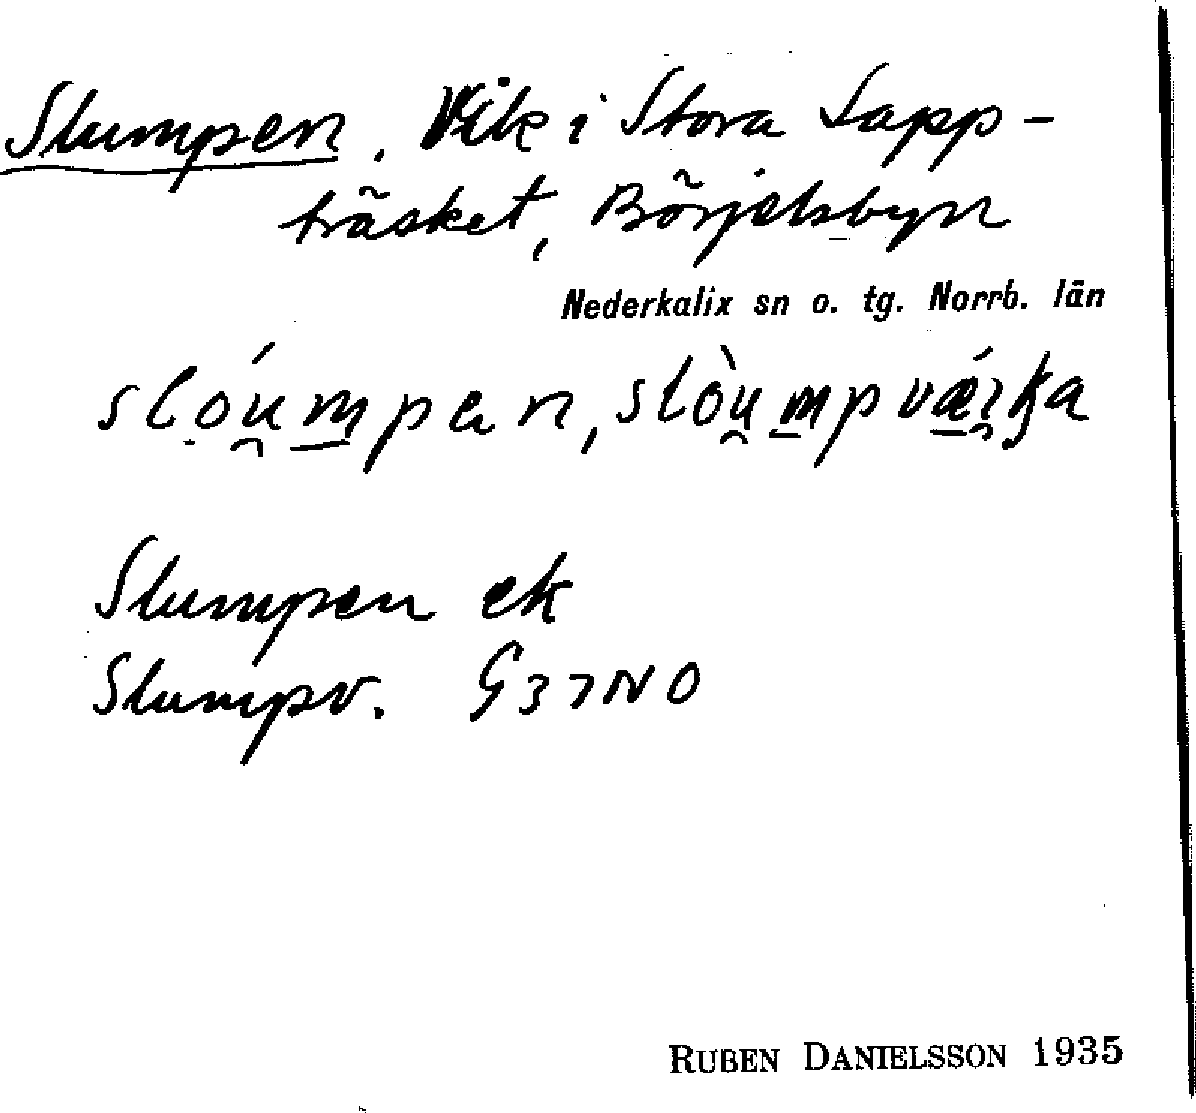 Slumpen. Vik i Stora Lapp-
träsket, Börjelsbyn
Nederkalix sn o. tg. Norrb. län
slóu̯m̲pan, slòu̯m̲pvǽi̯ka
Slumpen ek
Slumpv. G37NO
RUBEN DANIELSSON 1935